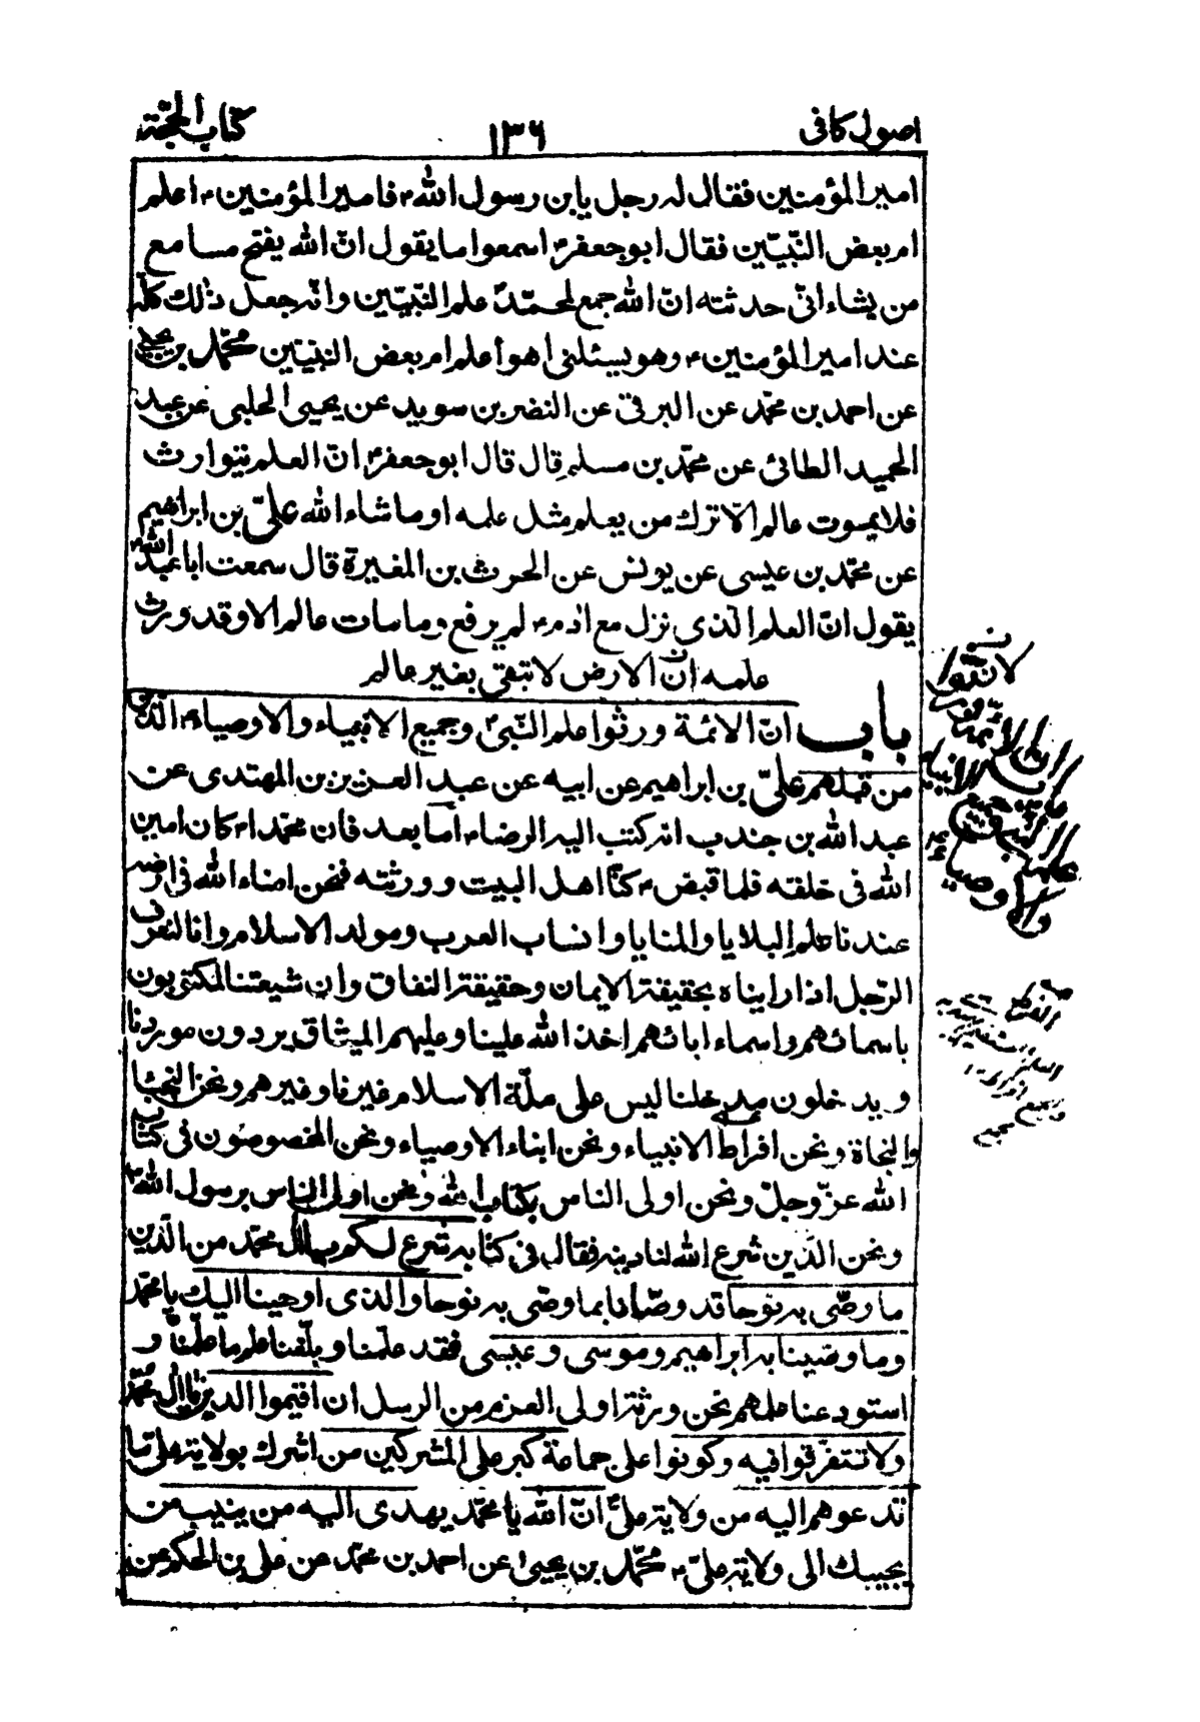 اصول كافى ١٣٦ كتاب الحجّة
امير المؤمنين فقال له رجل يابن رسول الله ٤ فامير المؤمنين ٤ اعلم
ام بعض النّبيّين فقال ابو جعفر ٤ اسمعوا ما يقول انّ الله يفتح مسامع
من يشاء انّى حدثته انّ الله جمع لمحمّد علم النّبيّين وانّه جعل ذلك كلّه
عند امير المؤمنين ٤ وهو يسئلنى اهو اعلم ام بعض النبيّين محمّد بن يحيى
عن احمد بن محمّد عن البرقى عن النضر بن سويد عن يحيى الحلبى عن عبد
الحميد الطائى عن محمّد بن مسلم قال قال ابو جعفر ٤ انّ العلم يتوارث
فلا يموت عالم الّا ترك من يعلم مثل علمه او ما شاء الله علىّ بن ابراهيم
عن محمّد بن عيسى عن يونس عن الحرث بن المغيرة قال سمعت ابا عبد الله ٤
يقول انّ العلم الّذى نزل مع ادم ٤ لم يرفع وما مات عالم الا وقد ورث
علمه انّ الارض لا تبقى بغير عالم
باب انّ الائمة ورثوا علم النّبى وجميع الانبياء والاوصياء ٤ الّذين
من قبلهم علىّ بن ابراهيم عن ابيه عن عبد العزيز بن المهتدى عن
عبد الله بن جندب انه كتب اليه الرضا ٤ امّا بعد فان محمّدا ٤ كان امين
الله فى خلقه فلما قبض ٤ كنّا اهل البيت وورثته فنحن امناء الله فى ارضه
عندنا علم البلايا والمنايا وانساب العرب ومولد الاسلام وانا لنعرف
الرّجل اذا رايناه بحقيقة الايمان وحقيقة النفاق وان شيعتنا لمكتوبون
باسمائهم واسماء ابائهم اخذ الله علينا وعليهم الميثاق يردون موردنا
ويدخلون مدخلنا ليس على ملّة الاسلام غيرنا وغيرهم ونحن النجباء
والنجاة ونحن افراط الانبياء ونحن ابناء الاوصياء ونحن المخصوصون فى كتاب
الله عزّ وجلّ ونحن اولى الناس بكتاب الله ونحن اولى الناس برسول الله
ونحن الّذين شرع الله لنا دينه فقال فى كتابه شرع لكم يا ال محمّد من الّذين
ما وصّى به نوحا قد وصّانا بما وصّى به نوحا والذى اوحينا اليك يا محمّد
وما وصّينا به ابراهيم وموسى وعيسى فقد علّمنا وبلّغنا علم ما علّمنا و
استودعنا علمهم نحن ورثة اولى العزم من الرسل ان اقيموا الدين يا ال محمّد
ولا تتفرّقوا فيه وكونوا على جماعة كبر على المشركين من اشرك بولاية علىّ ما
تدعوهم اليه من ولاية علىّ انّ الله يا محمّد يهدى اليه من ينيب من
يجيبك الى ولاية علىّ ٤ محمّد بن يحيى عن احمد بن محمّد عن على بن الحكم عن